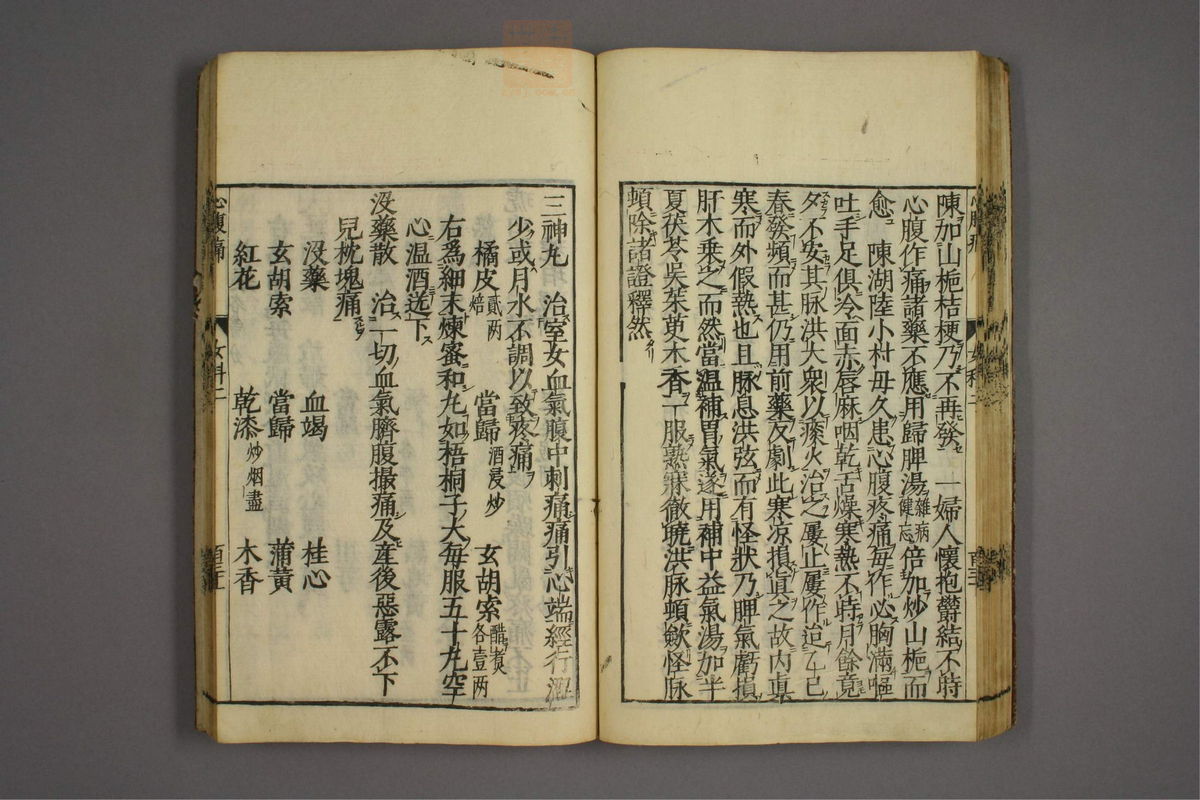 陳加山梔桔梗乃不再發　一婦人懷抱欝結不時
心腹作痛諸藥不應用歸脾湯雜病健忘倍加炒山梔而
愈　陳湖陸小村毋久患心腹疼痛每作必胸滿嘔
吐手足俱冷面赤唇麻咽乾舌燥寒熱不時月餘竟
夕不安其脉洪大衆以痰火治之屢止屢作迨乙巳
春發頻而甚仍用前藥反劇此寒凉損眞之故内眞
寒而外假熱也且脉息洪弦而有怪狀乃脾氣虧損
肝木乘之而然當温補胃氣遂用補中益氣湯加半
夏茯苓吳茱萸木香一服熟寐徹曉洪脉頓歛怪脉
頓除諸證釋然
三神丸　治室女血氣腹中刺痛痛引心端經行澀
少或月水不調以致疼痛
橘皮貳两焙　當歸酒浸炒　玄胡索醋煑各壹两
右爲細末煉蜜和丸如梧桐子大每服五十丸空
心温酒送下
没藥散　治一切血氣臍腹撮痛及産後惡露不下
兒枕塊痛
没藥　血竭　桂心
玄胡索　當歸　蒲黄
紅花　乾漆炒烟盡　木香
心腹痛　女科二